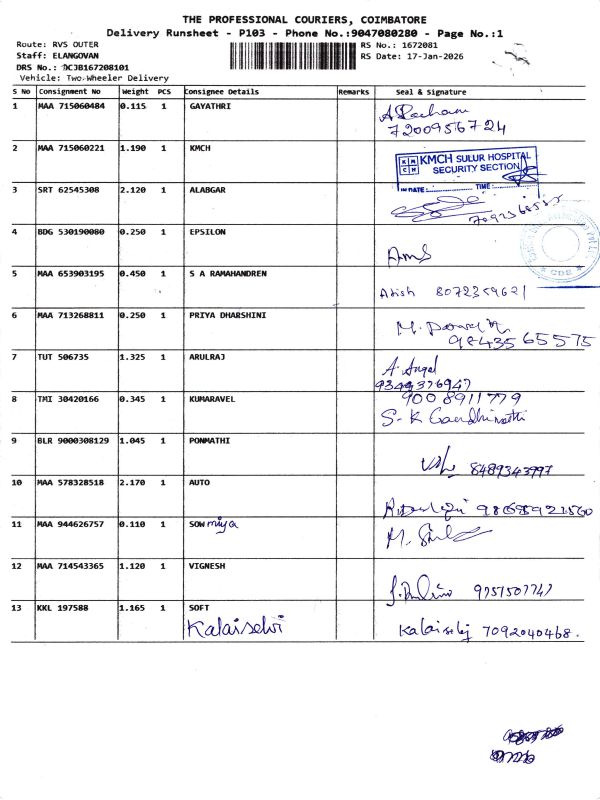 THE PROFESSIONAL COURIERS, COIMBATORE
Delivery Runsheet - P103 - Phone No.:9047080280 - Page No.:1
Route: RVS OUTER RS No.: 1672081
Staff: ELANGOVAN RS Date: 17-Jan-2026
DRS No.: DCJB167208101
Vehicle: Two-Wheeler Delivery
S No Consignment No Weight PCS Consignee Details Remarks Seal & Signature
1 MAA 715060484 0.115 1 GAYATHRI
7200956724
2 MAA 715060221 1.190 1 KMCH
KMCH SULUR HOSPITAL
SECURITY SECTION
IN DATE: TIME:
3 SRT 62545308 2.120 1 ALABGAR
4 BDG 530190080 0.250 1 EPSILON
CBE
5 MAA 653903195 0.450 1 S A RAMAHANDREN
8072359621
6 MAA 713268811 0.250 1 PRIYA DHARSHINI
98435 65575
7 TUT 506735 1.325 1 ARULRAJ
A. Angel
9344376947
8 TMI 30420166 0.345 1 KUMARAVEL
900 8911779
S-K Gandhimathi
9 BLR 9000308129 1.045 1 PONMATHI
8489343997
10 MAA 578328518 2.170 1 AUTO
11 MAA 944626757 0.110 1 SOWmiya
12 MAA 714543365 1.120 1 VIGNESH
9751507747
13 KKL 197588 1.165 1 SOFT
Kalaiselvi
7092040468.